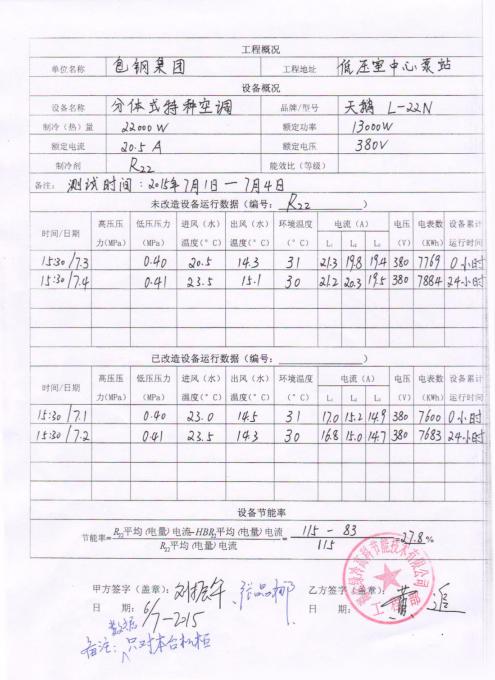 工程概况
单位名称 包钢集团 工程地址 低压室中心泵站
设备概况
设备名称 分体式特种空调 品牌/型号 天鹅 L-22N
制冷（热）量 22000W 额定功率 13000W
额定电流 20.5 A 额定电压 380V
制冷剂 R22 能效比（等级）
备注： 测试时间：2015年7月1日—7月4日
未改造设备运行数据（编号： R22 ）
时间/日期 高压压力(MPa) 低压压力(MPa) 进风（水）温度(°C) 出风（水）温度(°C) 环境温度(°C) 电流（A） L₁ L₂ L₃ 电压(V) 电表数(KWh) 设备累计运行时间
15:30/7.3 0.40 20.5 14.3 31 21.3 19.8 19.4 380 7769 0小时
15:30/7.4 0.41 23.5 15.1 30 21.2 20.3 19.5 380 7884 24小时
已改造设备运行数据（编号： ）
时间/日期 高压压力(MPa) 低压压力(MPa) 进风（水）温度(°C) 出风（水）温度(°C) 环境温度(°C) 电流（A） L₁ L₂ L₃ 电压(V) 电表数(KWh) 设备累计运行时间
15:30/7.1 0.40 23.0 14.5 31 17.0 15.2 14.9 380 7600 0小时
15:30/7.2 0.41 23.5 14.3 30 16.8 15.0 14.7 380 7683 24小时
设备节能率
节能率= R22平均(电量)电流-HBR平均(电量)电流 / R22平均(电量)电流 = 115 - 83 / 115 =27.8%
甲方签字（盖章）： 刘振午 乙方签字（盖章）：
日 期： 6/7-2015 日 期：
数据
备注：只对本台机柜